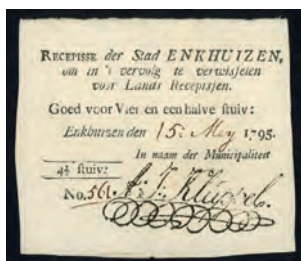 RECEPISSE der Stad ENKHUIZEN,
om in 't vervolg te verwisselen
voor Lands Recepissen.
Goed voor Vier en een halve stuiv:
Enkhuizen den 15: Mey 1795.
In naam der Municipaliteit
4½ stuiv:
No. 561. Kluppel.